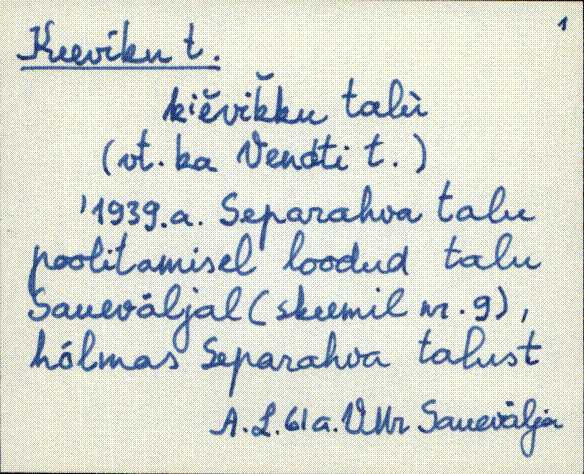 1
Keeviku t.
kiĕvikku talù
(vt. ka Vendti t.)
'1939.a. Separahva talu
poolitamisel loodud talu
Saueväljal (skeemil nr. 9),
hólmas Separahva talust
A.L. 61a. VMr Sauevälja